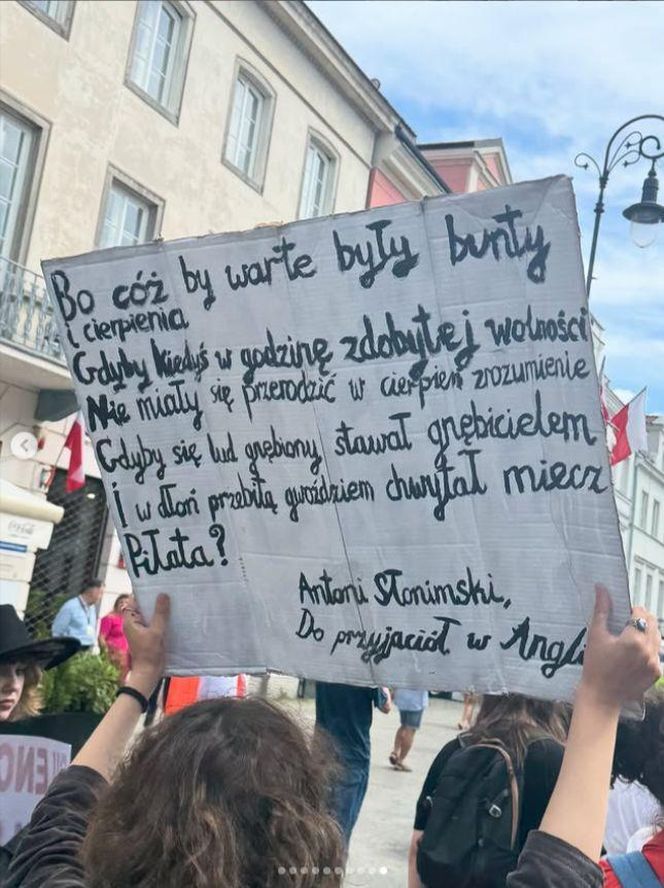 Bo cóż by warte były bunty
i cierpienia
Gdyby kiedyś w godzinę zdobytej wolności
Nie miały się przerodzić w cierpień zrozumienie
Gdyby się lud gnębiony stawał gnębicielem
I w dłoń przebitą gwoździem chwytał miecz
Piłata?
Antoni Słonimski,
Do przyjaciół w Angli
Coca-Cola